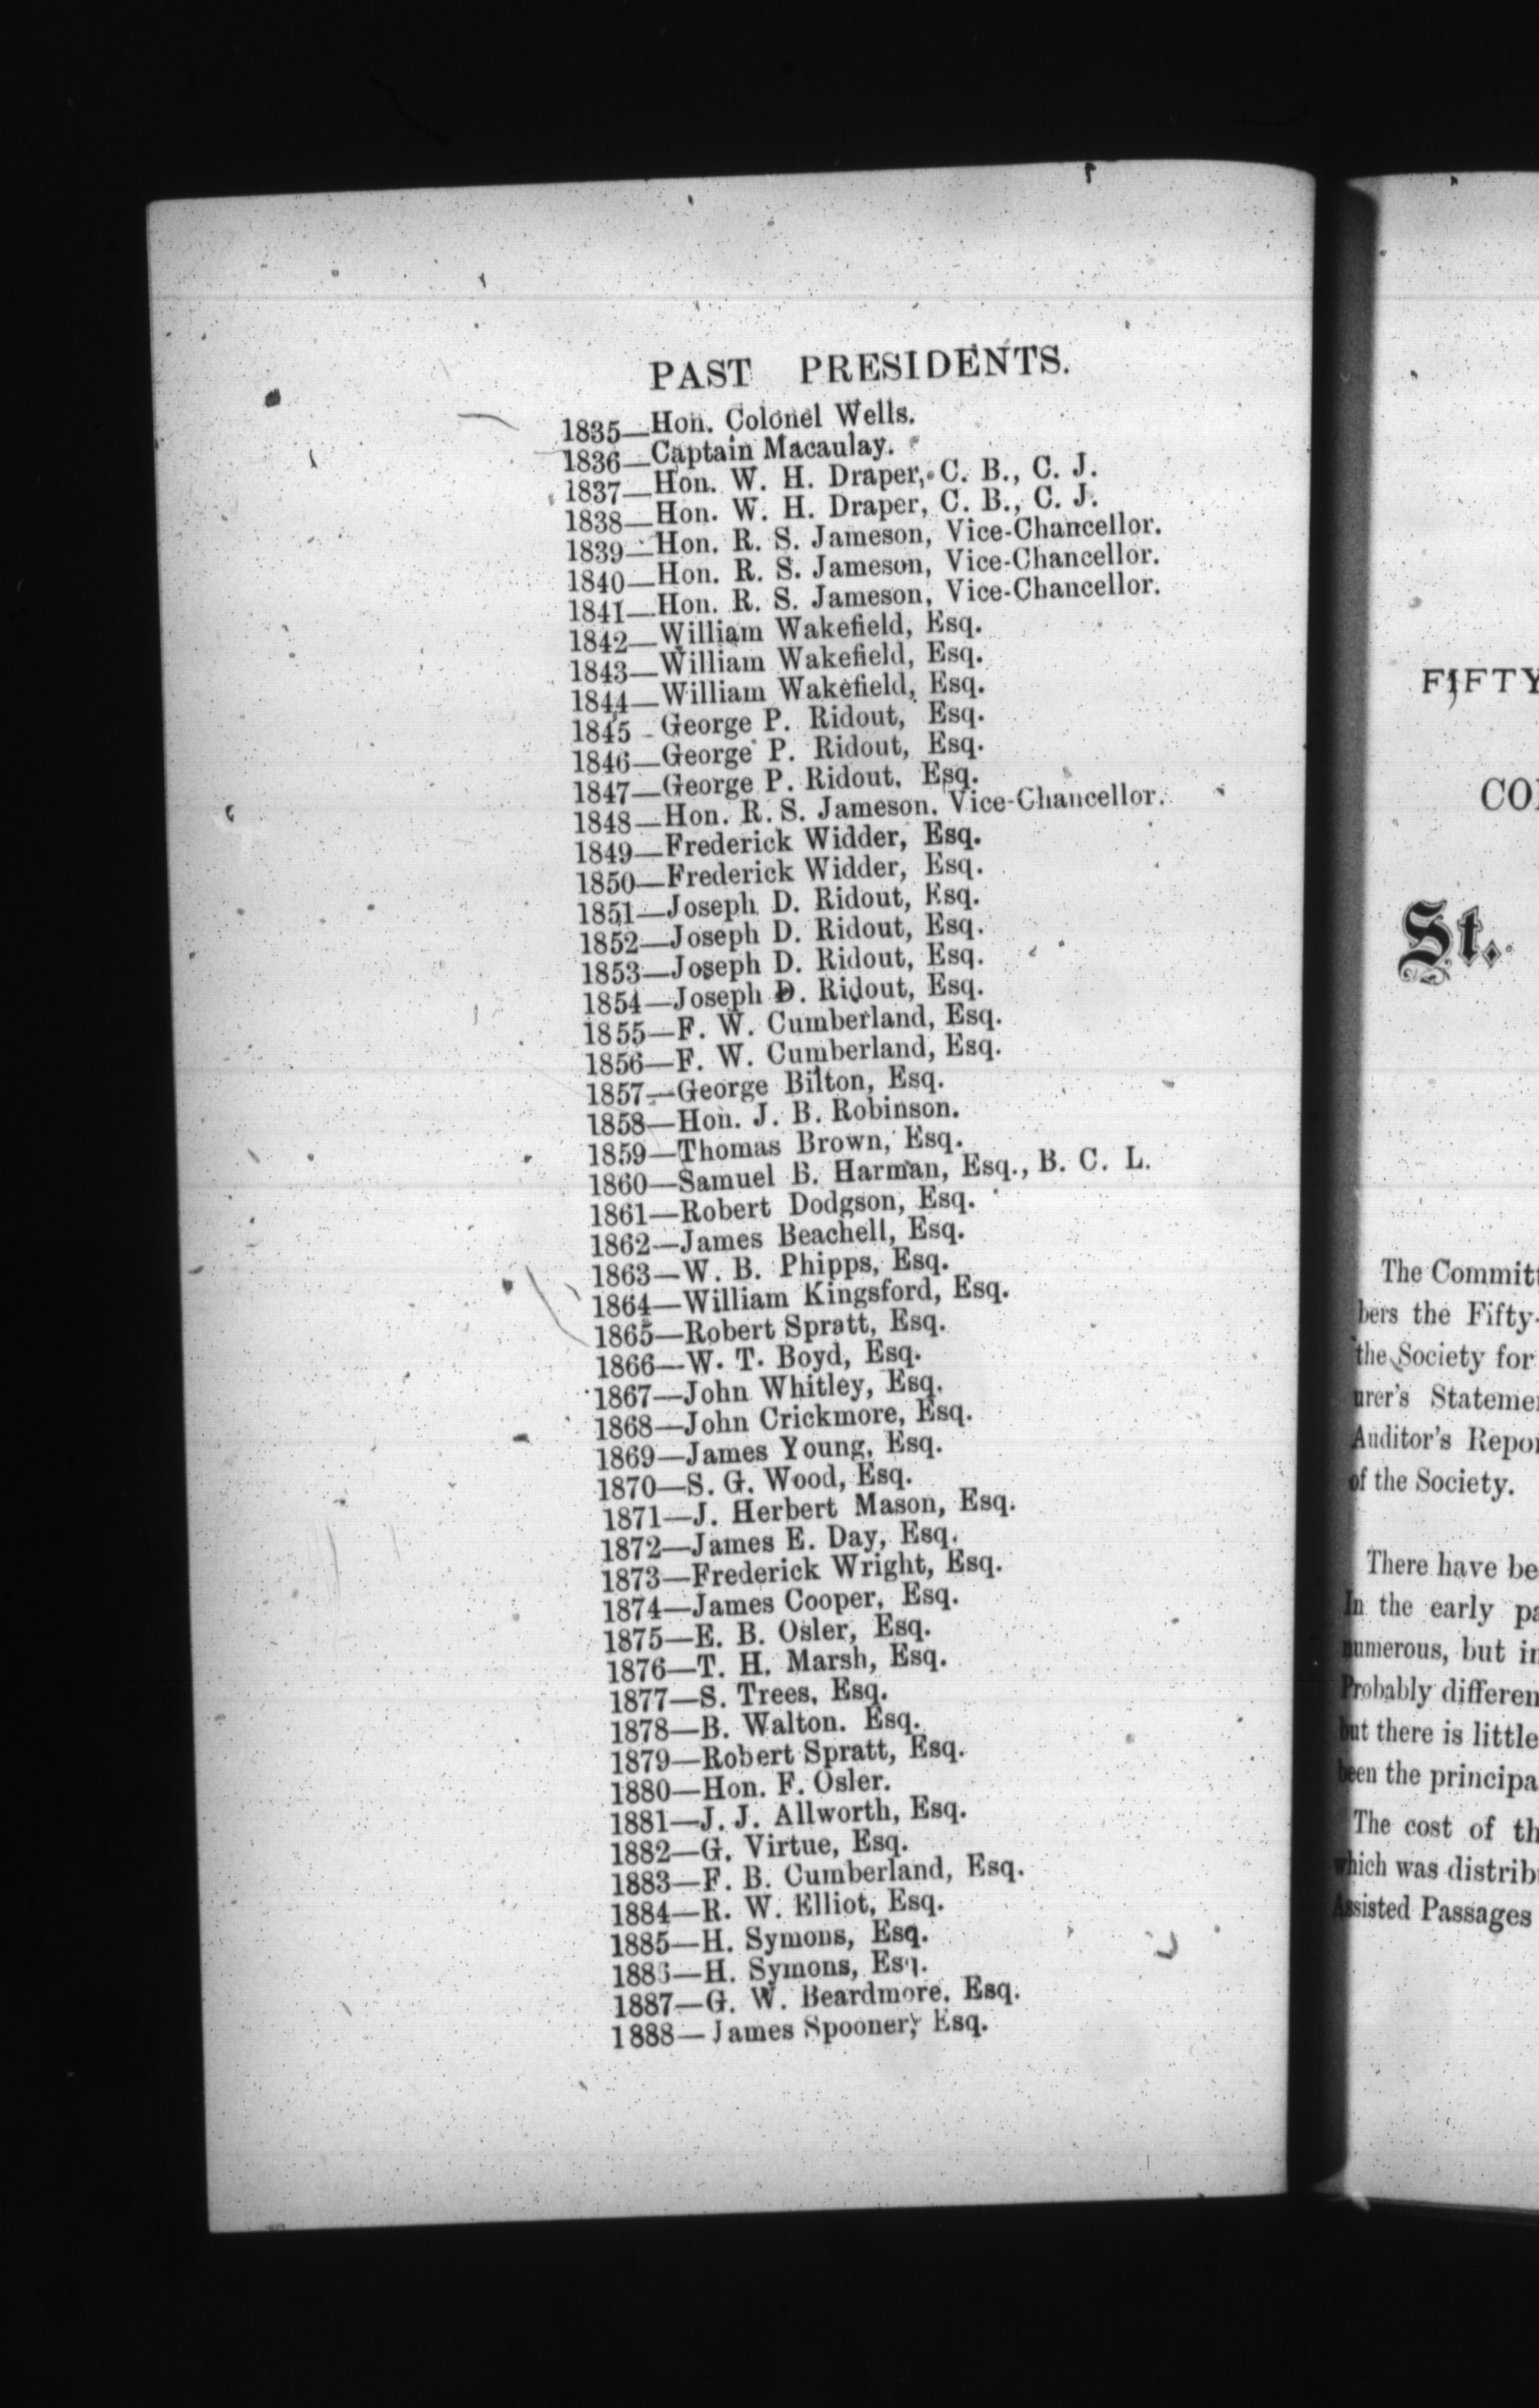 PAST PRESIDENTS.
1835—Hon. Colonel Wells.
1836—Captain Macaulay.
1837—Hon. W. H. Draper, C. B., C. J.
1838—Hon. W. H. Draper, C. B., C. J.
1839—Hon. R. S. Jameson, Vice-Chancellor.
1840—Hon. R. S. Jameson, Vice-Chancellor.
1841—Hon. R. S. Jameson, Vice-Chancellor.
1842—William Wakefield, Esq.
1843—William Wakefield, Esq.
1844—William Wakefield, Esq.
1845 - George P. Ridout, Esq.
1846—George P. Ridout, Esq.
1847—George P. Ridout, Esq.
1848—Hon. R. S. Jameson. Vice-Chancellor.
1849—Frederick Widder, Esq.
1850—Frederick Widder, Esq.
1851—Joseph D. Ridout, Esq.
1852—Joseph D. Ridout, Esq.
1853—Joseph D. Ridout, Esq.
1854—Joseph D. Ridout, Esq.
1855—F. W. Cumberland, Esq.
1856—F. W. Cumberland, Esq.
1857—George Bilton, Esq.
1858—Hon. J. B. Robinson.
1859—Thomas Brown, Esq.
1860—Samuel B. Harman, Esq., B. C. L.
1861—Robert Dodgson, Esq.
1862—James Beachell, Esq.
1863—W. B. Phipps, Esq.
1864—William Kingsford, Esq.
1865—Robert Spratt, Esq.
1866—W. T. Boyd, Esq.
1867—John Whitley, Esq.
1868—John Crickmore, Esq.
1869—James Young, Esq.
1870—S. G. Wood, Esq.
1871—J. Herbert Mason, Esq.
1872—James E. Day, Esq.
1873—Frederick Wright, Esq.
1874—James Cooper, Esq.
1875—E. B. Osler, Esq.
1876—T. H. Marsh, Esq.
1877—S. Trees, Esq.
1878—B. Walton. Esq.
1879—Robert Spratt, Esq.
1880—Hon. F. Osler.
1881—J. J. Allworth, Esq.
1882—G. Virtue, Esq.
1883—F. B. Cumberland, Esq.
1884—R. W. Elliot, Esq.
1885—H. Symons, Esq.
1886—H. Symons, Esq.
1887—G. W. Beardmore, Esq.
1888—James Spooner, Esq.
FIFTY
CO
St.
The Committ
bers the Fifty-
the Society for
urer's Stateme
Auditor's Repo
of the Society.
There have be
In the early pa
numerous, but in
Probably differen
but there is little
been the principa
The cost of th
which was distrib
Assisted Passages